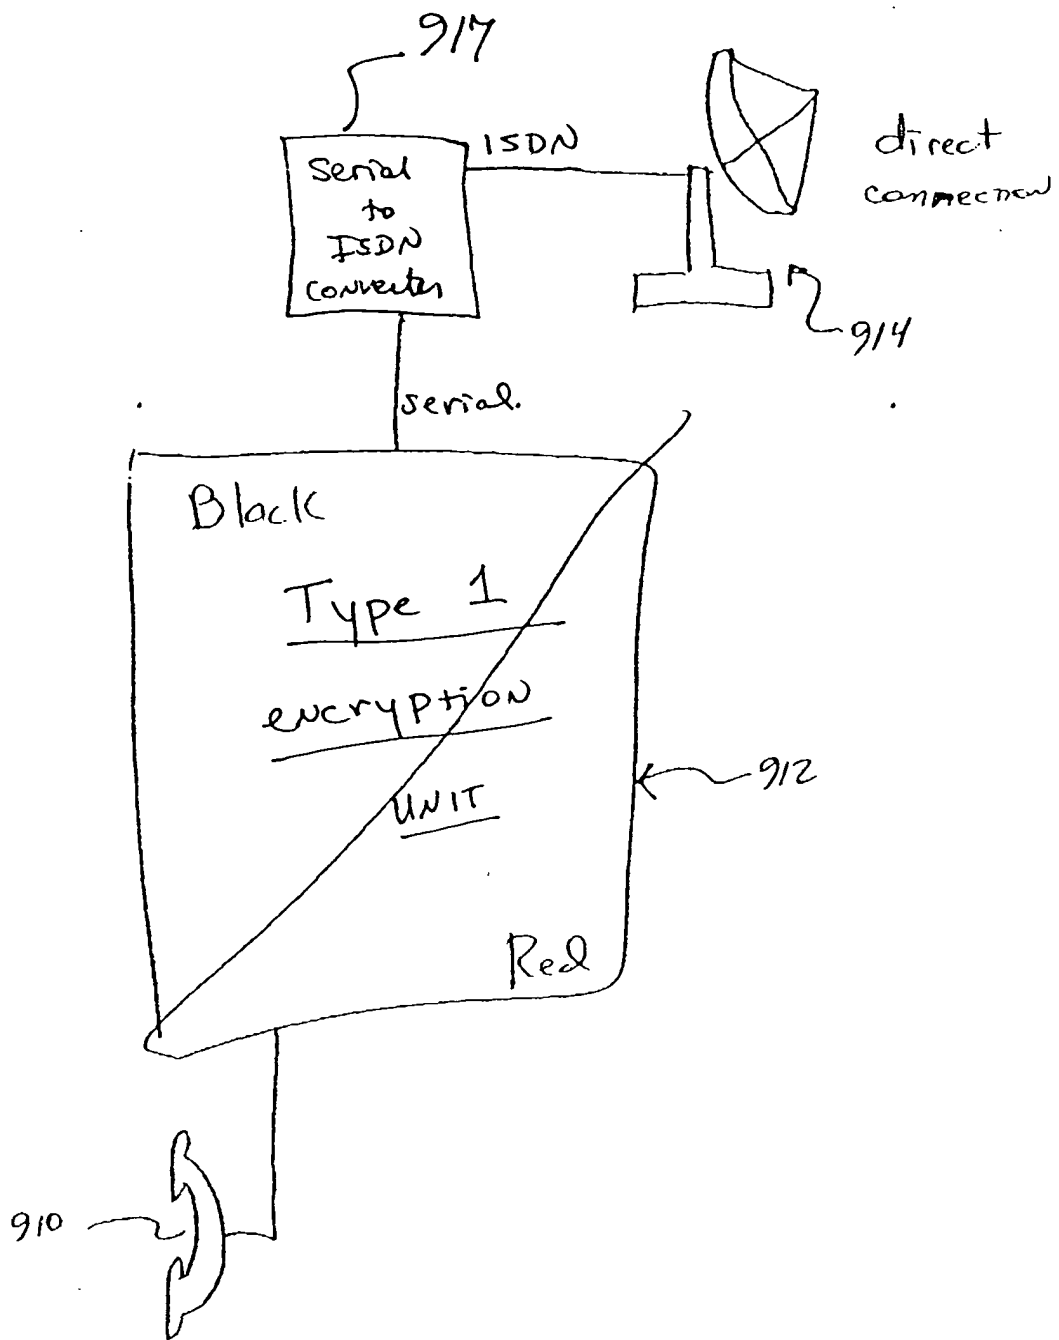 917
ISDN
Serial
to
ISDN
converter
direct
connection
914
serial.
Black
Type 1
encryption
UNIT
912
Red
910